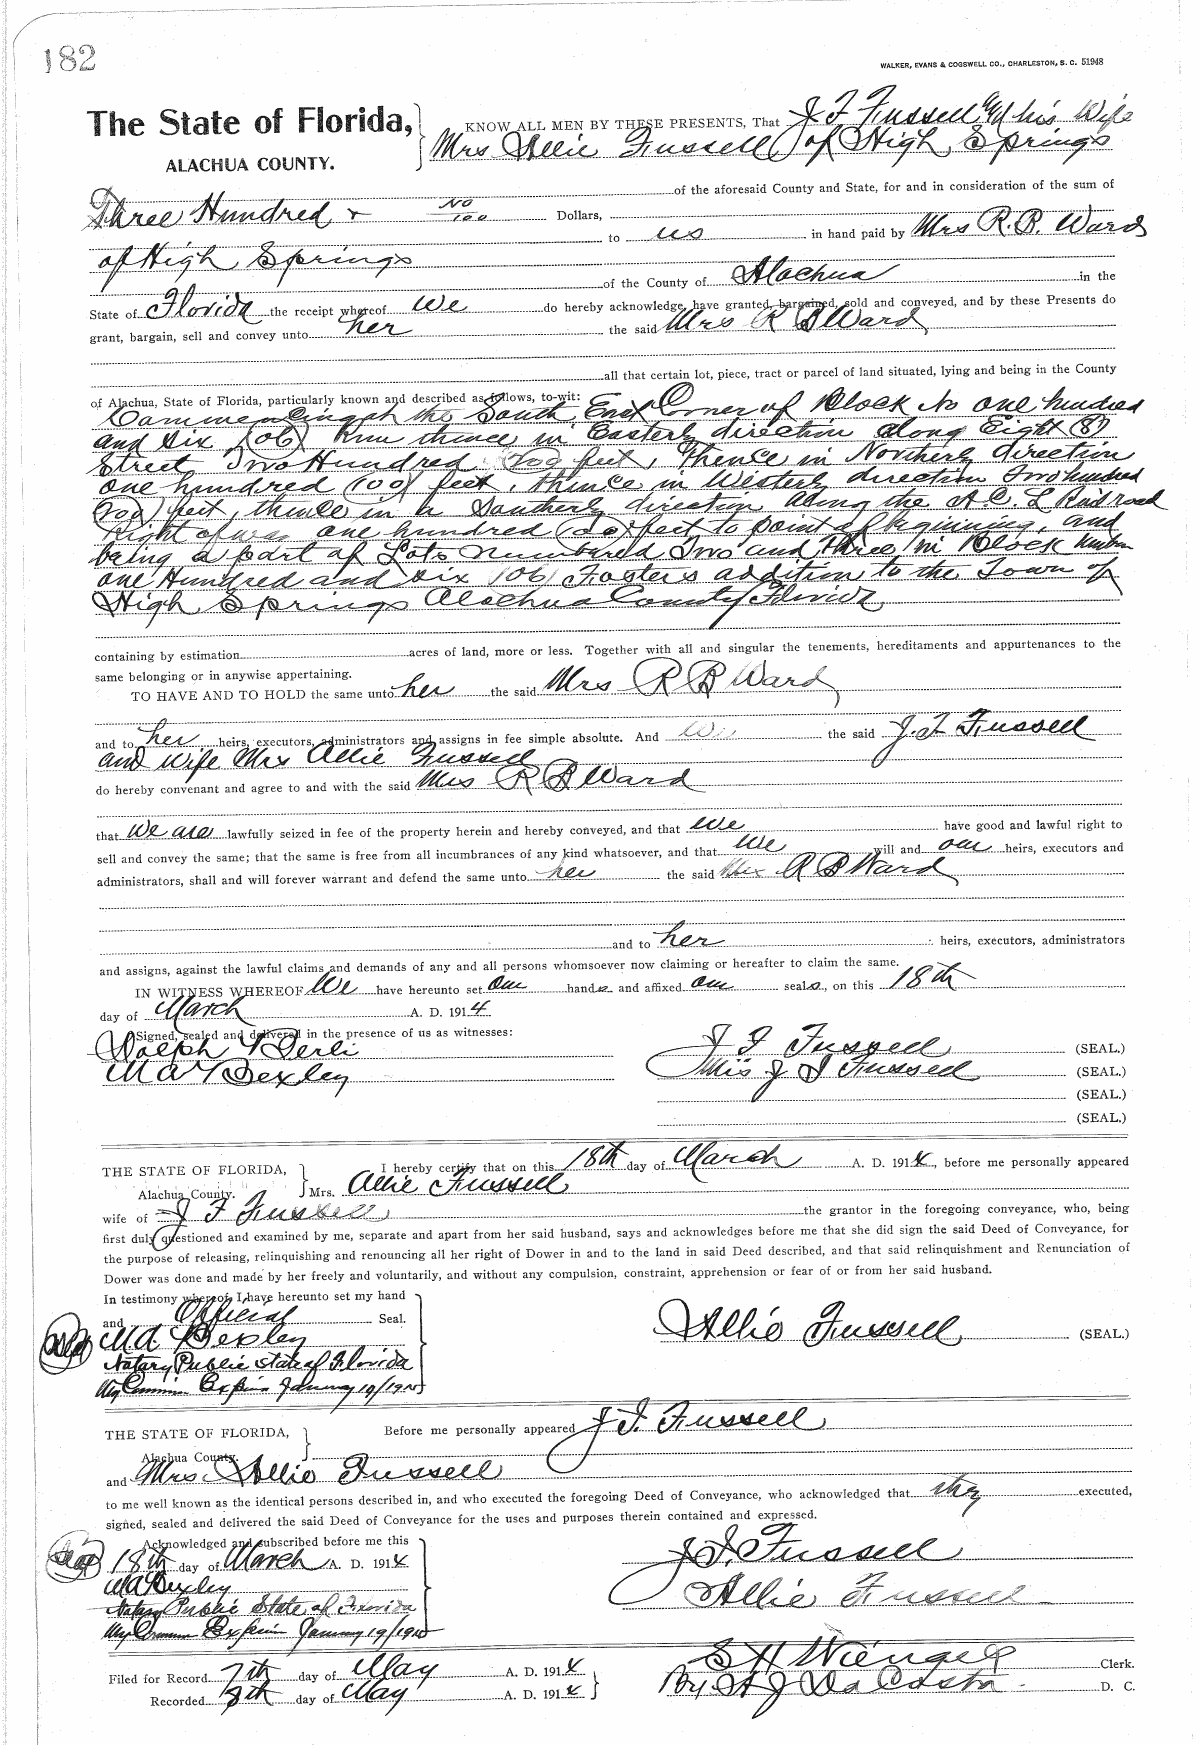 182
WALKER, EVANS & COGSWELL CO., CHARLESTON, S. C. 51948
The State of Florida,
ALACHUA COUNTY.
KNOW ALL MEN BY THESE PRESENTS, That J F Fussell and his Wife
Mrs Allie Fussell of High Springs
of the aforesaid County and State, for and in consideration of the sum of
Three Hundred & No/100 Dollars,
to us in hand paid by Mrs R. B. Ward
of High Springs
of the County of Alachua in the
State of Florida the receipt whereof We do hereby acknowledge, have granted, bargained, sold and conveyed, and by these Presents do
grant, bargain, sell and convey unto her the said Mrs R B Ward
all that certain lot, piece, tract or parcel of land situated, lying and being in the County
of Alachua, State of Florida, particularly known and described as follows, to-wit:
Commencing at the South East Corner of Block No one hundred
and six (106) Run thence in Easterly direction along Eight (8)
Street Two Hundred (200) feet, Thence in Northerly direction
one hundred (100) feet, thence in Westerly direction Two hundred
(200) feet, thence in a Southerly direction along the A. C. L Railroad
Right of way one hundred (100) feet to point of beginning, and
being a part of Lots numbered Two and three in Block number
one Hundred and six (106) Fosters addition to the Town of
High Springs Alachua County Florida
containing by estimation acres of land, more or less. Together with all and singular the tenements, hereditaments and appurtenances to the
same belonging or in anywise appertaining.
TO HAVE AND TO HOLD the same unto her the said Mrs R B Ward
and to her heirs, executors, administrators and assigns in fee simple absolute. And We the said J. F. Fussell
and wife Mrs Allie Fussell
do hereby convenant and agree to and with the said Mrs R B Ward
that we are lawfully seized in fee of the property herein and hereby conveyed, and that we have good and lawful right to
sell and convey the same; that the same is free from all incumbrances of any kind whatsoever, and that we will and our heirs, executors and
administrators, shall and will forever warrant and defend the same unto her the said Mrs R B Ward
and to her heirs, executors, administrators
and assigns, against the lawful claims and demands of any and all persons whomsoever now claiming or hereafter to claim the same.
IN WITNESS WHEREOF We have hereunto set our hands and affixed our seals, on this 18th
day of March A. D. 1914
Signed, sealed and delivered in the presence of us as witnesses:
J F Fussell (SEAL.)
M A Bexley
Mrs J F Fussell (SEAL.)
(SEAL.)
(SEAL.)
THE STATE OF FLORIDA,
Alachua County.
I hereby certify that on this 18th day of March A. D. 1914, before me personally appeared
Mrs. Allie Fussell
wife of J F Fussell the grantor in the foregoing conveyance, who, being
first duly questioned and examined by me, separate and apart from her said husband, says and acknowledges before me that she did sign the said Deed of Conveyance, for
the purpose of releasing, relinquishing and renouncing all her right of Dower in and to the land in said Deed described, and that said relinquishment and Renunciation of
Dower was done and made by her freely and voluntarily, and without any compulsion, constraint, apprehension or fear of or from her said husband.
In testimony whereof, I have hereunto set my hand
and Official Seal.
M. A. Bexley
Allie Fussell (SEAL.)
Notary Public State of Florida
My Commission Expires January 19/1915
THE STATE OF FLORIDA,
Alachua County.
Before me personally appeared J. F. Fussell
and Mrs. Allie Fussell
to me well known as the identical persons described in, and who executed the foregoing Deed of Conveyance, who acknowledged that they executed,
signed, sealed and delivered the said Deed of Conveyance for the uses and purposes therein contained and expressed.
Acknowledged and subscribed before me this
18th day of March A. D. 1914
J. F. Fussell
M A Bexley
Allie Fussell
Notary Public State of Florida
My Commission Expires January 19/1915
Filed for Record 7th day of May A. D. 1914
S H Wienges Clerk.
Recorded 8th day of May A. D. 1914
By A J Da Costa D. C.